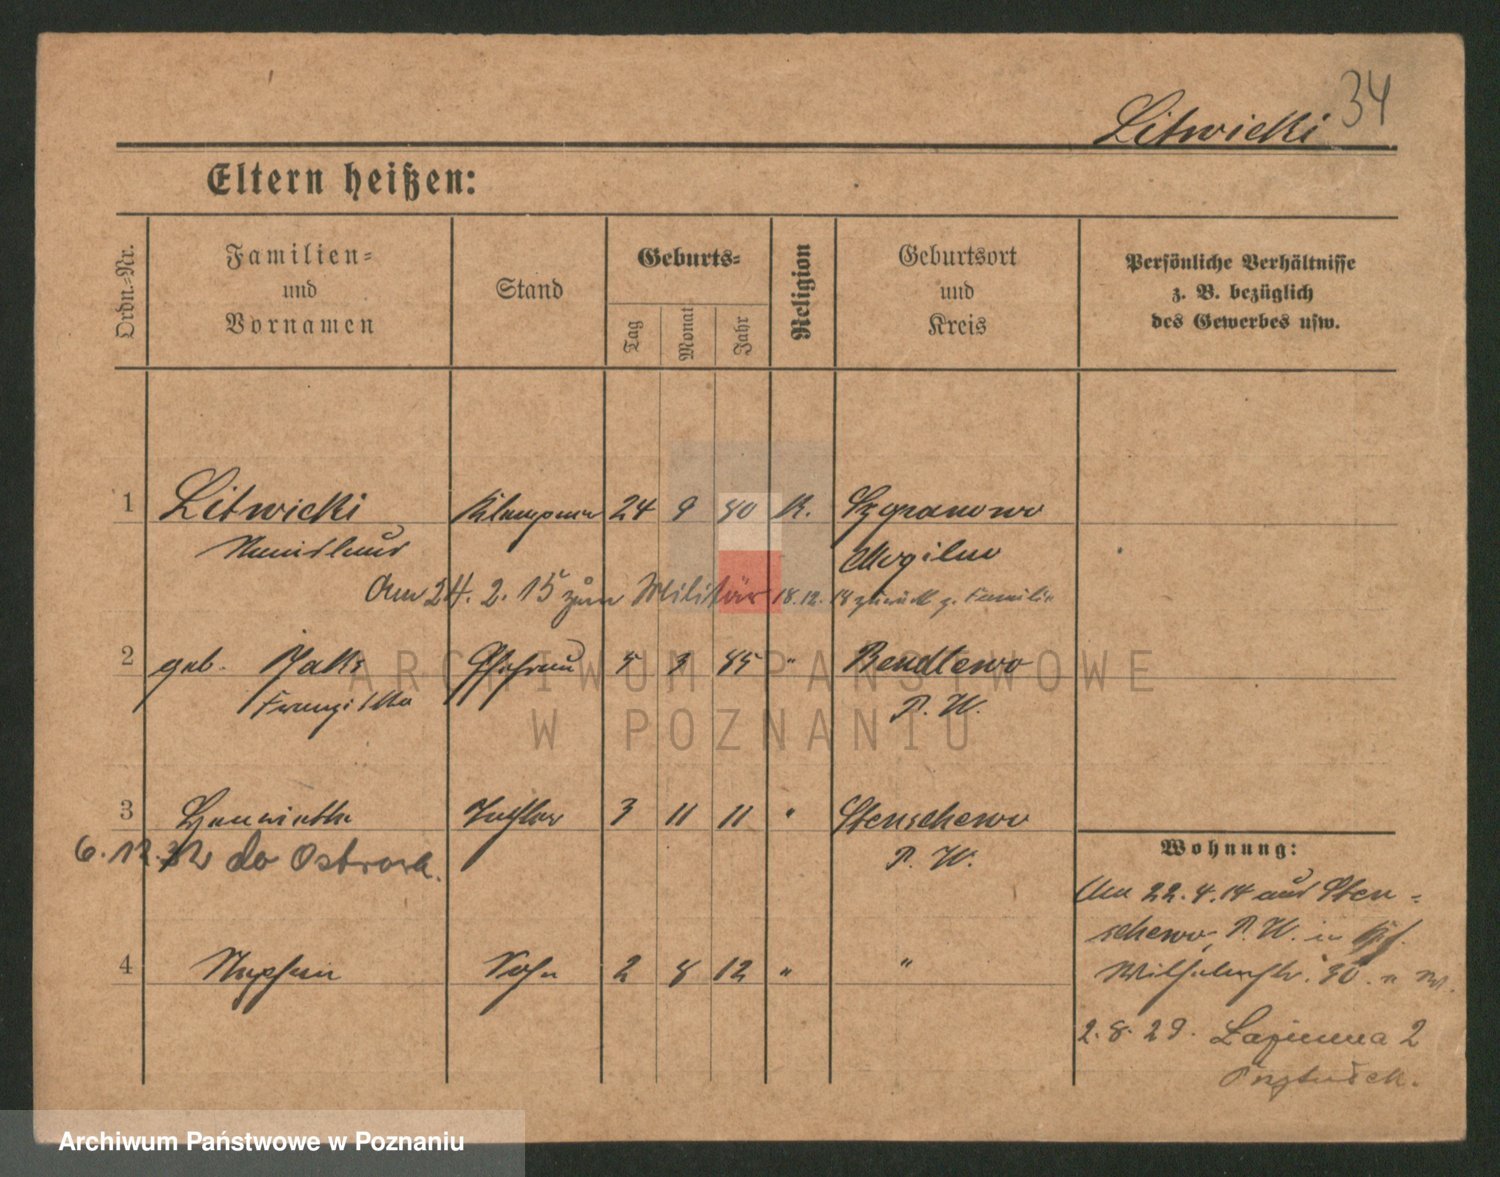 34
Litwicki
Eltern heißen:
Ordn.-Nr.
Familien-
und
Vornamen
Stand
Geburts-
Tag
Monat
Jahr
Religion
Geburtsort
und
Kreis
Persönliche Verhältnisse
z. B. bezüglich
des Gewerbes usw.
1 Litwicki Klempner 24 9 80 K. Szczanowo
Stanislaus Mogilno
Am 24. 2. 15 zum Militär 18.12.18 zurück z. Familie
2 geb. Ehefrau 5 3 85 " Bendlewo
Franziska P. W.
3 Tochter 3 11 11 " Stenschewo
6. 12. 32 do Ostrowa. P. W.
Wohnung:
Am 22.4.14 aus Sten-
schewo, P. W. in
4 Stephan Sohn 2 8 12 " "
Wilhelmstr. 30.
2. 8. 29. Lazienna 2
ARCHIWUM PAŃSTWOWE
W POZNANIU
Archiwum Państwowe w Poznaniu